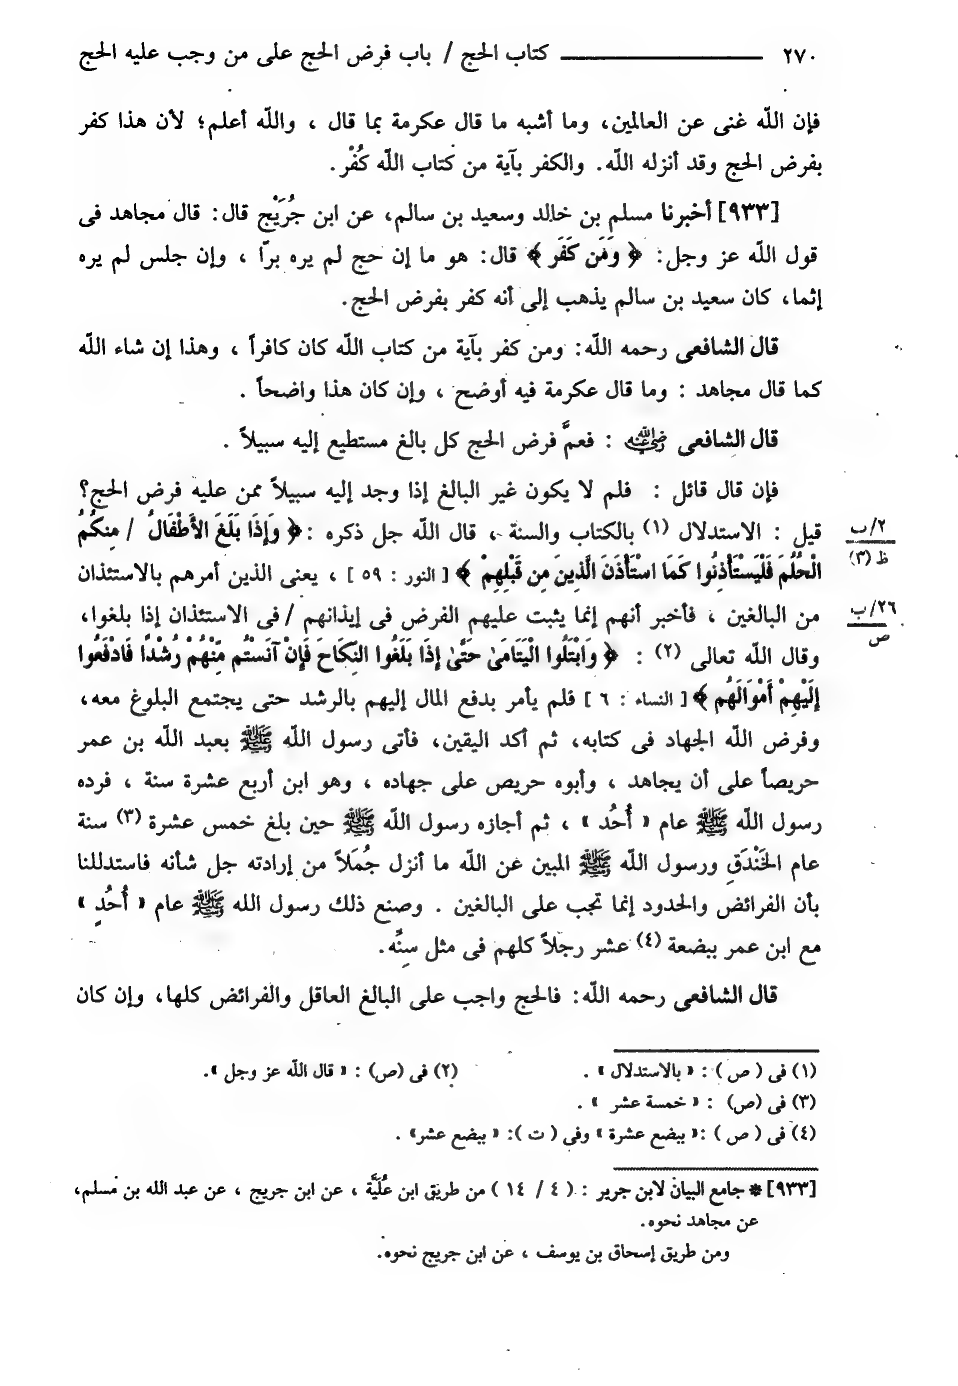 ٢٧٠ ـــــــــــــــــ كتاب الحج / باب فرض الحج على من وجب عليه الحج
فإن الله غنى عن العالمين، وما أشبه ما قال عكرمة بما قال ، والله أعلم؛ لأن هذا كفر
بفرض الحج وقد أنزله الله. والكفر بآية من كتاب الله كُفْر.
[٩٣٣] أخبرنا مسلم بن خالد وسعيد بن سالم، عن ابن جُرَيْج قال: قال مجاهد فى
قول الله عز وجل: ﴿ وَمَن كَفَر ﴾ قال: هو ما إن حج لم يره برّا ، وإن جلس لم يره
إثما، كان سعيد بن سالم يذهب إلى أنه كفر بفرض الحج.
قال الشافعى رحمه الله: ومن كفر بآية من كتاب الله كان كافراً ، وهذا إن شاء الله
كما قال مجاهد : وما قال عكرمة فيه أوضح ، وإن كان هذا واضحاً .
قال الشافعى رضي الله عنه : فعمَّ فرض الحج كل بالغ مستطيع إليه سبيلاً .
فإن قال قائل : فلم لا يكون غير البالغ إذا وجد إليه سبيلاً ممن عليه فرض الحج؟
قيل : الاستدلال (١) بالكتاب والسنة ، قال الله جل ذكره :﴿ وَإِذَا بَلَغَ الأَطْفَالُ / مِنكُمُ
٢/ب
ظ (٣)
الْحُلُمَ فَلْيَسْتَأْذِنُوا كَمَا اسْتَأْذَنَ الَّذِينَ مِن قَبْلِهِمْ ﴾ [ النور : ٥٩ ] ، يعنى الذين أمرهم بالاستئذان
من البالغين ، فأخبر أنهم إنما يثبت عليهم الفرض فى إيذانهم / فى الاستئذان إذا بلغوا،
٢٦/ب
ص
وقال الله تعالى (٢) : ﴿ وَابْتَلُوا الْيَتَامَىٰ حَتَّىٰ إِذَا بَلَغُوا النِّكَاحَ فَإِنْ آنَسْتُم مِّنْهُمْ رُشْدًا فَادْفَعُوا
إِلَيْهِمْ أَمْوَالَهُم ﴾ [ النساء : ٦ ] فلم يأمر بدفع المال إليهم بالرشد حتى يجتمع البلوغ معه،
وفرض الله الجهاد فى كتابه، ثم أكد اليقين، فأتى رسول الله ﷺ بعبد الله بن عمر
حريصاً على أن يجاهد ، وأبوه حريص على جهاده ، وهو ابن أربع عشرة سنة ، فرده
رسول الله ﷺ عام « أُحُد » ، ثم أجازه رسول الله ﷺ حين بلغ خمس عشرة (٣) سنة
عام الخَنْدَقِ ورسول الله ﷺ المبين عن الله ما أنزل جُمَلاً من إرادته جل شأنه فاستدللنا
بأن الفرائض والحدود إنما تجب على البالغين . وصنع ذلك رسول الله ﷺ عام « أُحُدٍ »
مع ابن عمر ببضعة (٤) عشر رجلاً كلهم فى مثل سِنِّه.
قال الشافعى رحمه الله: فالحج واجب على البالغ العاقل والفرائض كلها، وإن كان
(١) فى ( ص ) : « بالاستدلال » . (٢) فى (ص) : « قال الله عز وجل ».
(٣) فى (ص) : « خمسة عشر » .
(٤) فى ( ص ) :« ببضع عشرة » وفى ( ت ): « ببضع عشر» .
[٩٣٣] * جامع البيان لابن جرير : ( ٤ / ١٤ ) من طريق ابن عُلَيَّة ، عن ابن جريج ، عن عبد الله بن مسلم،
عن مجاهد نحوه.
ومن طريق إسحاق بن يوسف ، عن ابن جريج نحوه.